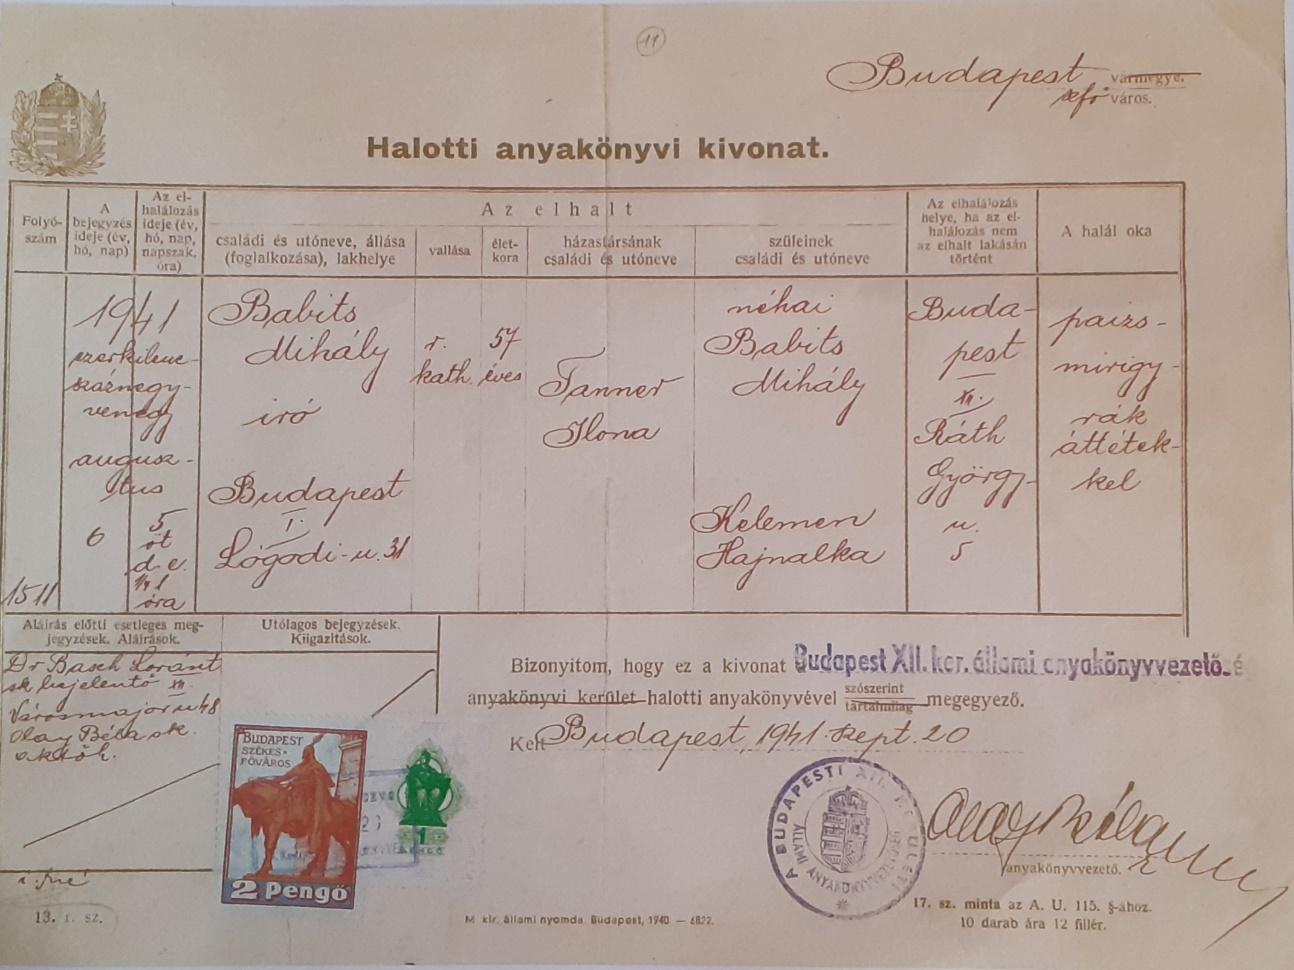 11
Budapest vármegye.
szfő város.
Halotti anyakönyvi kivonat.
Folyó-
szám
A
bejegyzés
ideje (év,
hó, nap)
Az el-
halálozás
ideje (év,
hó, nap,
napszak,
óra)
Az elhalt
családi és utóneve, állása
(foglalkozása), lakhelye
vallása
élet-
kora
házastársának
családi és utóneve
szüleinek
családi és utóneve
Az elhalálozás
helye, ha az el-
halálozás nem
az elhalt lakásán
történt
A halál oka
1511
1941
ezerkilenc-
száznegy-
venegy
augusz-
tus
6
5
öt
d. e.
óra
Babits
Mihály
író
Budapest
I.
Lógodi-u. 31
r.
kath.
57
éves
Tanner
Ilona
néhai
Babits
Mihály
Kelemen
Hajnalka
Buda-
pest
XII.
Ráth
György-
u.
5
pajzs-
mirigy-
rák
áttétek-
kel
Aláírás előtti esetleges meg-
jegyzések. Aláírások.
Dr Basch Loránt
sk bejelentő XII.
Városmajor u 48
Olay Béla sk.
akvh.
Utólagos bejegyzések.
Kiigazítások.
Bizonyítom, hogy ez a kivonat Budapest XII. ker. állami anyakönyvvezető-ég
anyakönyvi kerület halotti anyakönyvével szószerint
tartalmilag megegyező.
Kelt Budapest, 1941. szept. 20
BUDAPEST
SZÉKES-
FŐVÁROS
2 Pengő
1
A BUDAPESTI XII. KERÜLETI
ÁLLAMI ANYAKÖNYVVEZETŐSÉG
Olay Béla
anyakönyvvezető.
13. r. sz.
M kir. állami nyomda. Budapest, 1940. — 6822.
17. sz. minta az A. U. 115. §-ához.
10 darab ára 12 fillér.